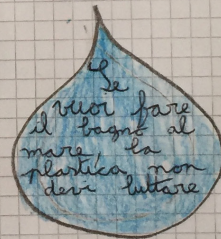 Se
vuoi fare
il bagno al
mare, la
plastica non
devi buttare